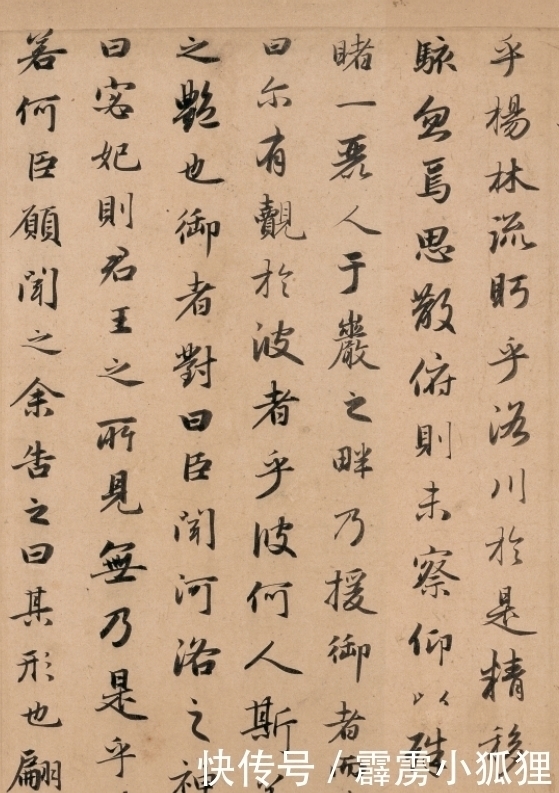 乎楊林流眄乎洛川於是精移
駭忽焉思散俯則未察仰以殊
睹一麗人于巖之畔乃援御者而
曰尒有覿於彼者乎彼何人斯
之艷也御者對曰臣聞河洛之神
曰宓妃則君王之所見無乃是乎
若何臣願聞之余告之曰其形也翩
快传号 / 霹雳小狐狸